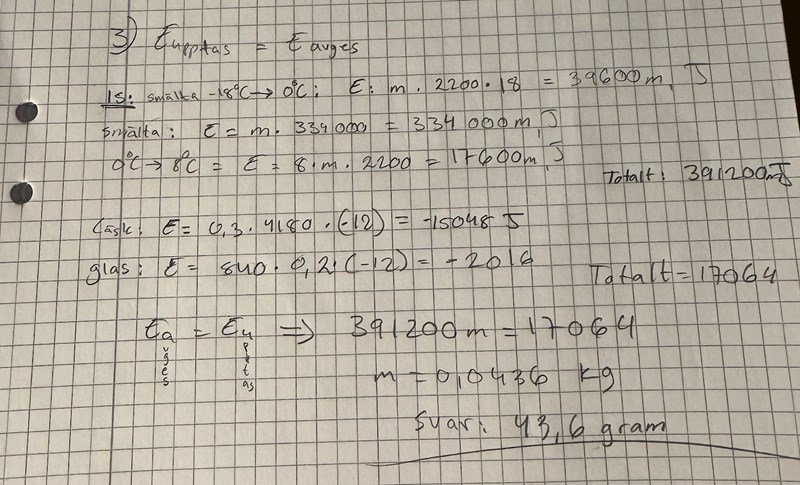 3) Eupptas = Eavges
IS: smälta -18°C → 0°C: E: m · 2200 · 18 = 39600m J
smälta: E = m · 334000 = 334 000m J
0°C → 8°C = E = 8 · m · 2200 = 17600m J
Totalt: 391200m J
Läsk: E = 0,3 · 4180 · (-12) = -15048 J
glas: E = 840 · 0,2 · (-12) = -2016
Totalt = 17064
Eavges = Eupptas ⇒ 391200m = 17064
m = 0,0436 kg
Svar: 43,6 gram